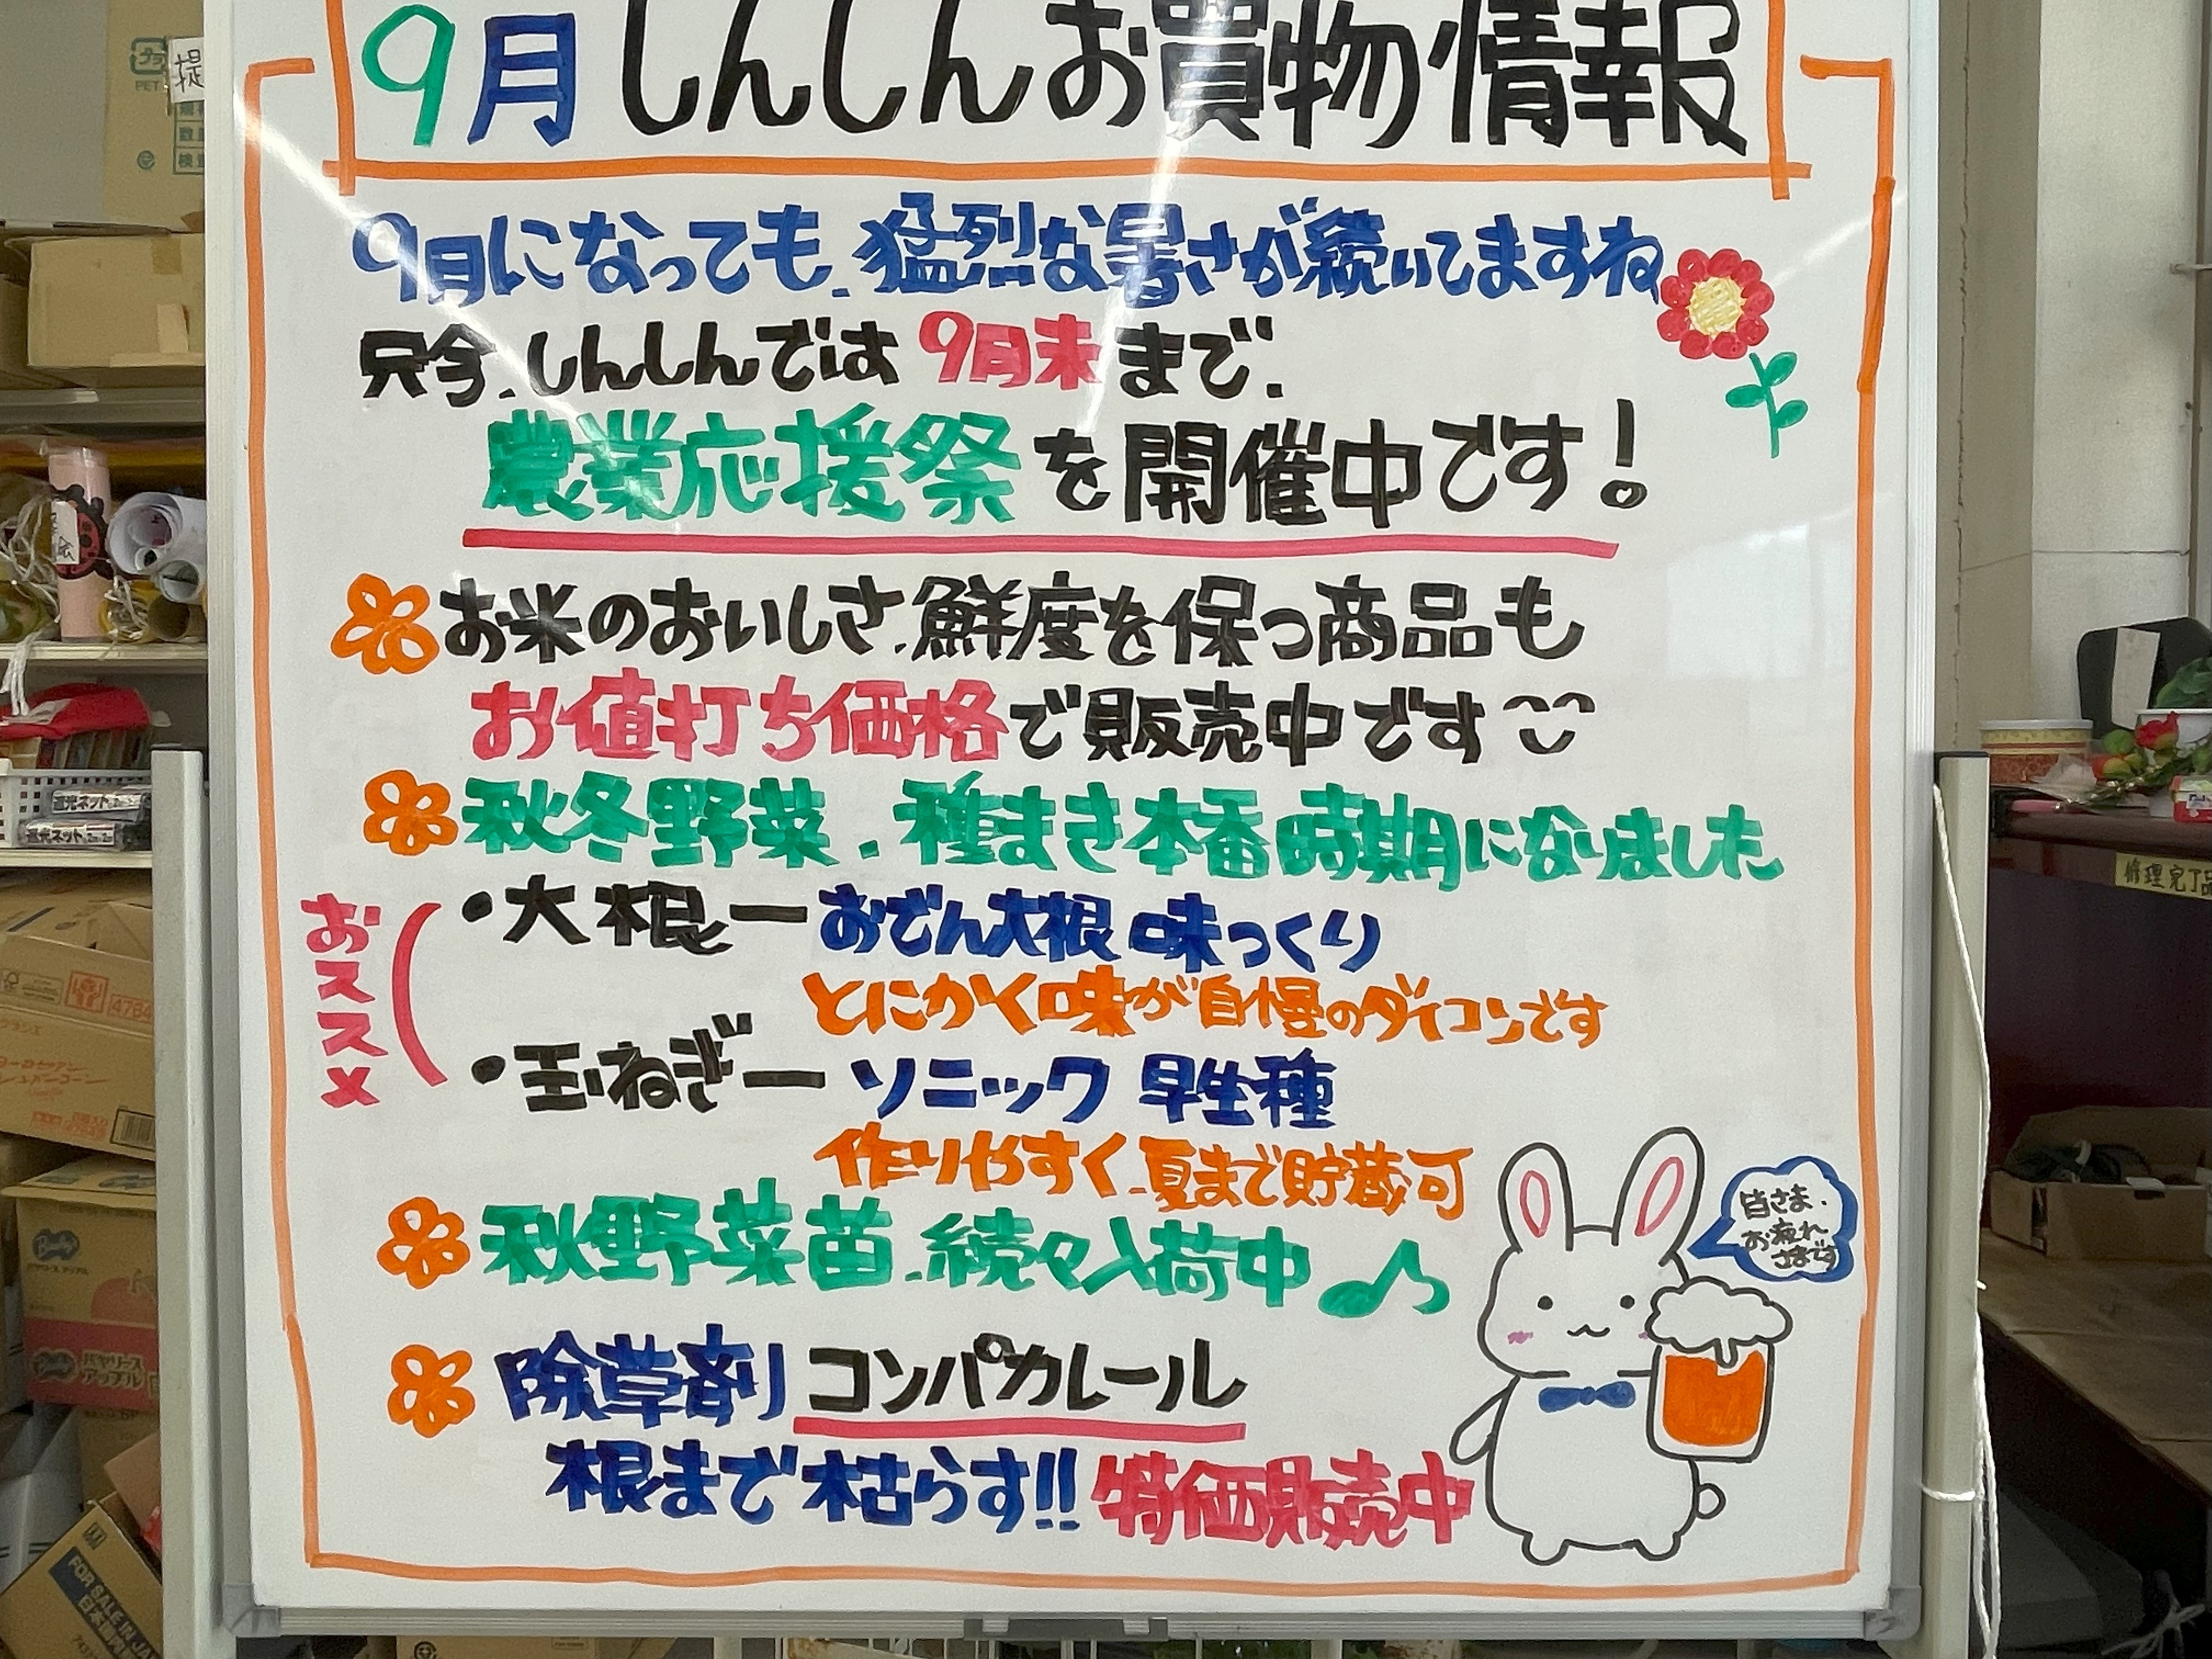 9月しんしんお買物情報
9月になっても、猛烈な暑さが続いてますね
只今、しんしんでは9月末まで、
農業応援祭を開催中です!
お米のおいしさ、鮮度を保つ商品も
お値打ち価格で販売中です
秋冬野菜、種まき本番時期になりました
おススメ
・大根ーおでん大根 味っくり
とにかく味が自慢のダイコンです
・玉ねぎーソニック 早生種
作りやすく、夏まで貯蔵可
秋野菜苗、続々入荷中♪
皆さま、
お疲れ
さまです
除草剤コンパカレール
根まで枯らす!!特価販売中
提
PET
遮光ネット
遮光ネット
修理完了品
4784
バヤリース
アップル
FOR SALE IN JA
日本国内